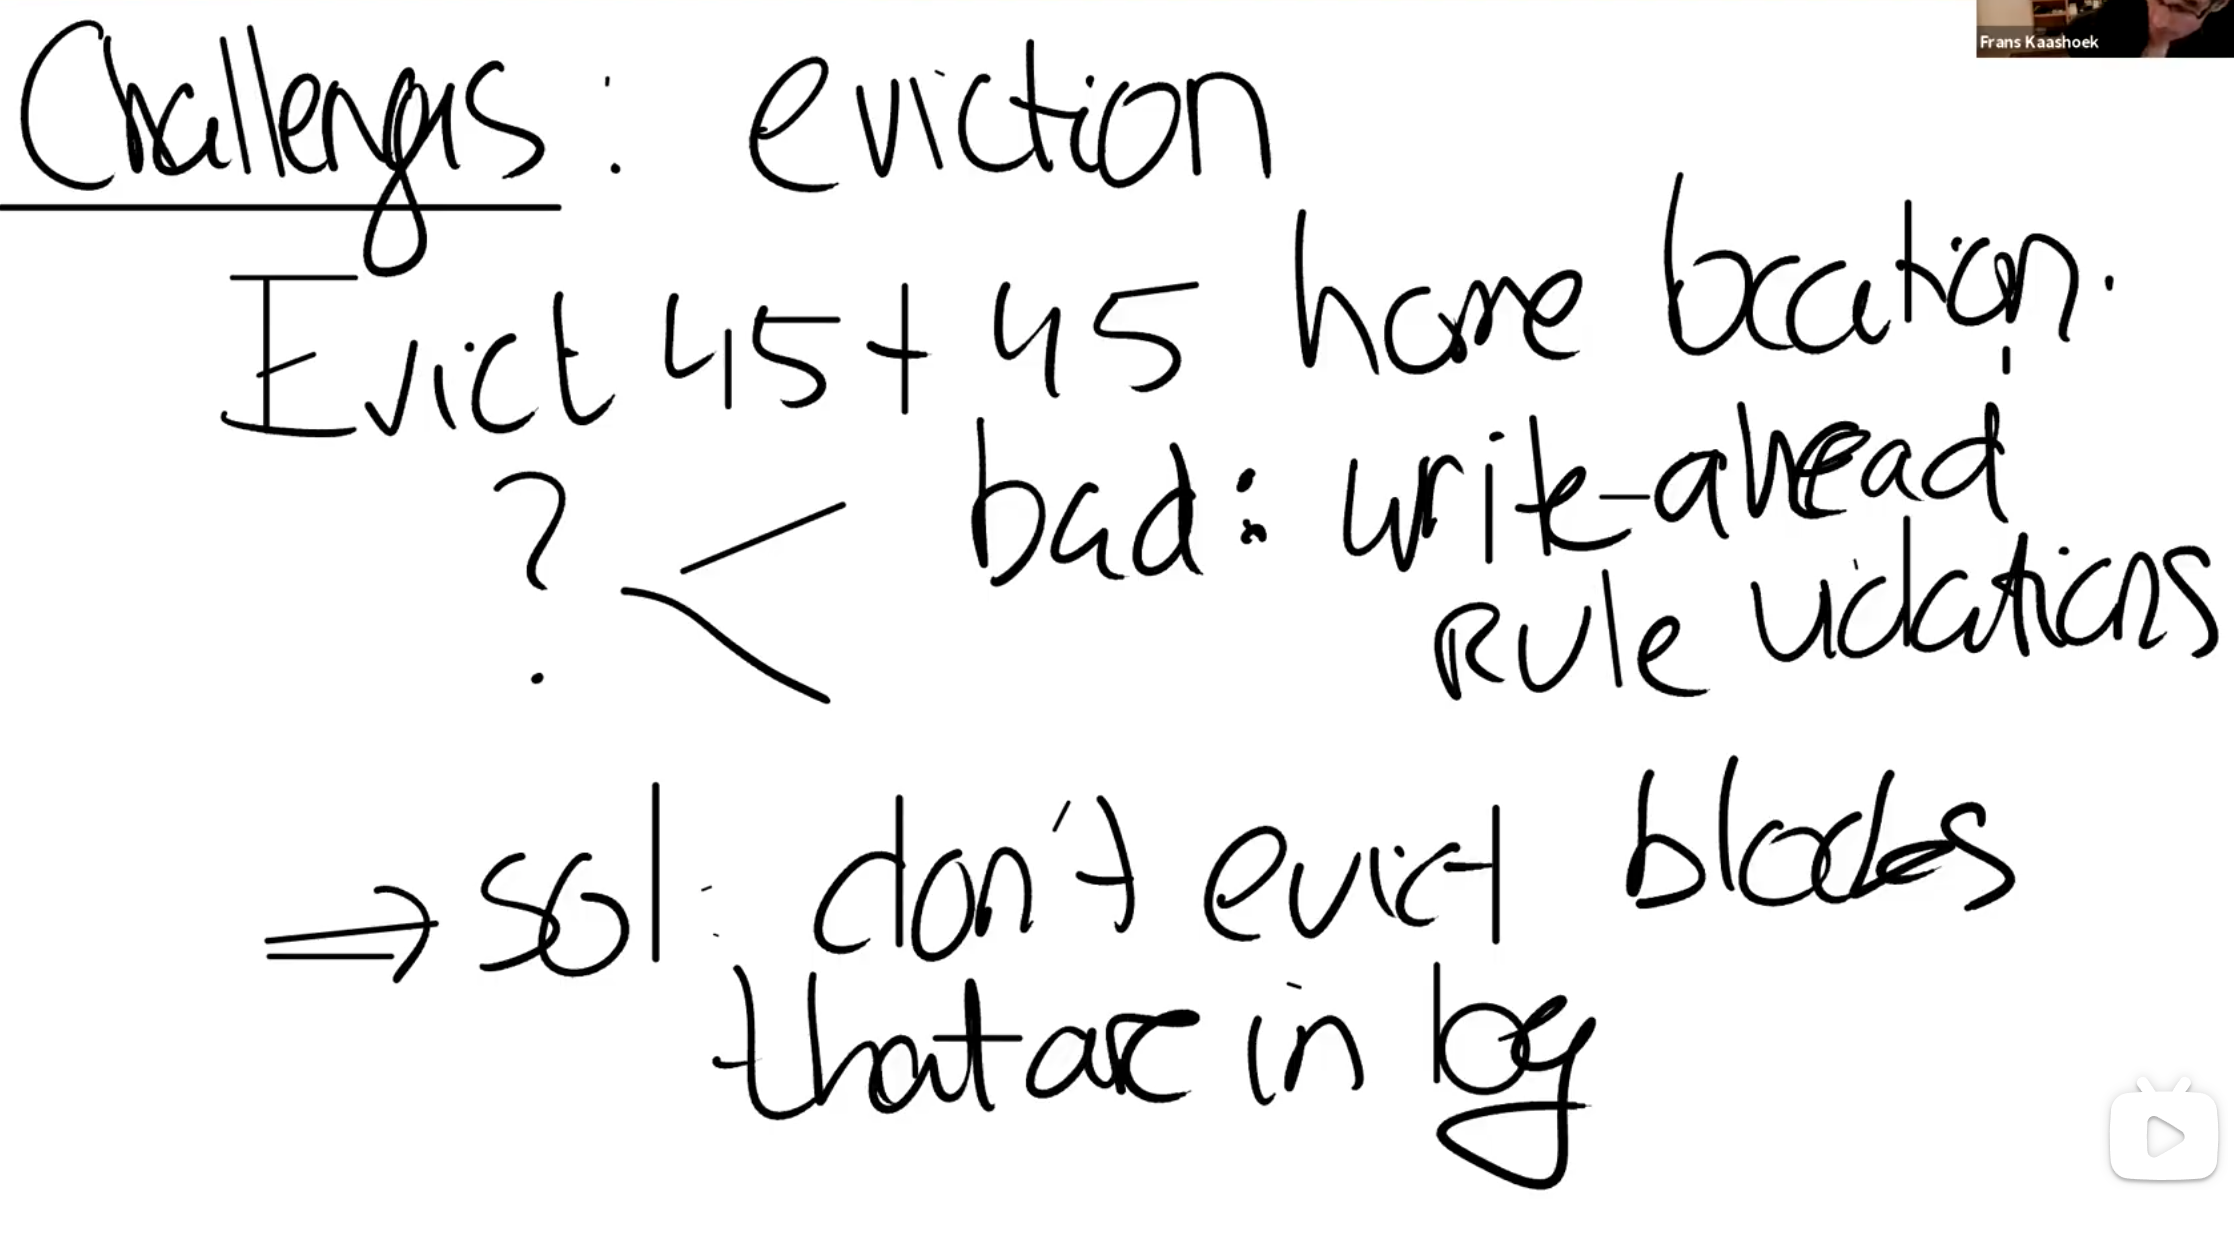 Frans Kaashoek
Challenges: eviction
Evict 45 + 45 home location.
? bad: write-ahead
Rule violations
⇒ sol: don't evict blocks
that are in log